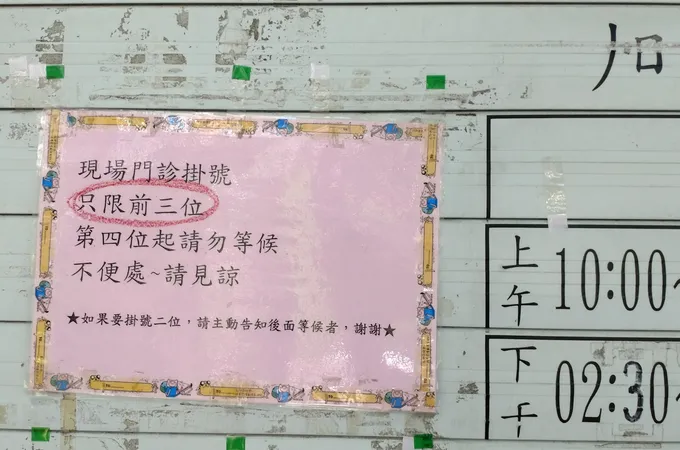 現場門診掛號
只限前三位
第四位起請勿等候
不便處~請見諒
★如果要掛號二位，請主動告知後面等候者，謝謝★
上午 10:00~
下午 02:30~